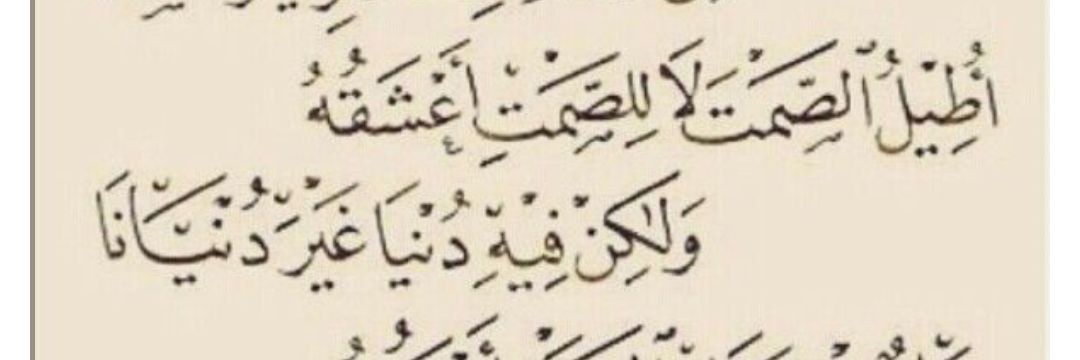 أُطِيْلُ ٱلصَّمْتَ لَا لِلصَّمْتِ أَعْشَقُهُ
وَلٰكِنْ فِيْهِ دُنْيَا غَيْرَ دُنْيَانَا